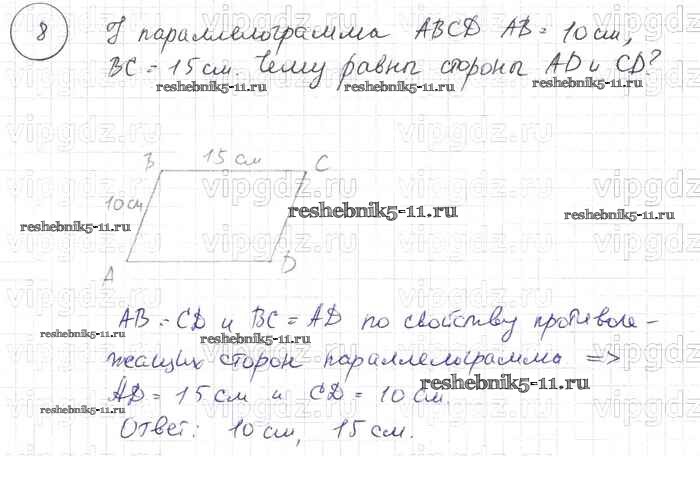 8 У параллелограмма ABCD AB = 10 см,
BC = 15 см. Чему равны стороны AD и CD?
reshebnik5-11.ru reshebnik5-11.ru reshebnik5-11.ru
B 15 см C
10 см
reshebnik5-11.ru reshebnik5-11.ru reshebnik5-11.ru
A D
AB = CD и BC = AD по свойству противоле-
reshebnik5-11.ru reshebnik5-11.ru
жащих сторон параллелограмма =>
reshebnik5-11.ru
AD = 15 см и CD = 10 см.
reshebnik5-11.ru
Ответ: 10 см, 15 см.
vipgdz.ru